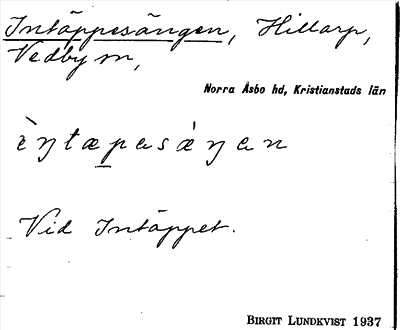 Intäppesängen, Hillarp,
Vedby sn,
Norra Åsbo hd, Kristianstads län
Vid Intäppet.
BIRGIT LUNDKVIST 1937